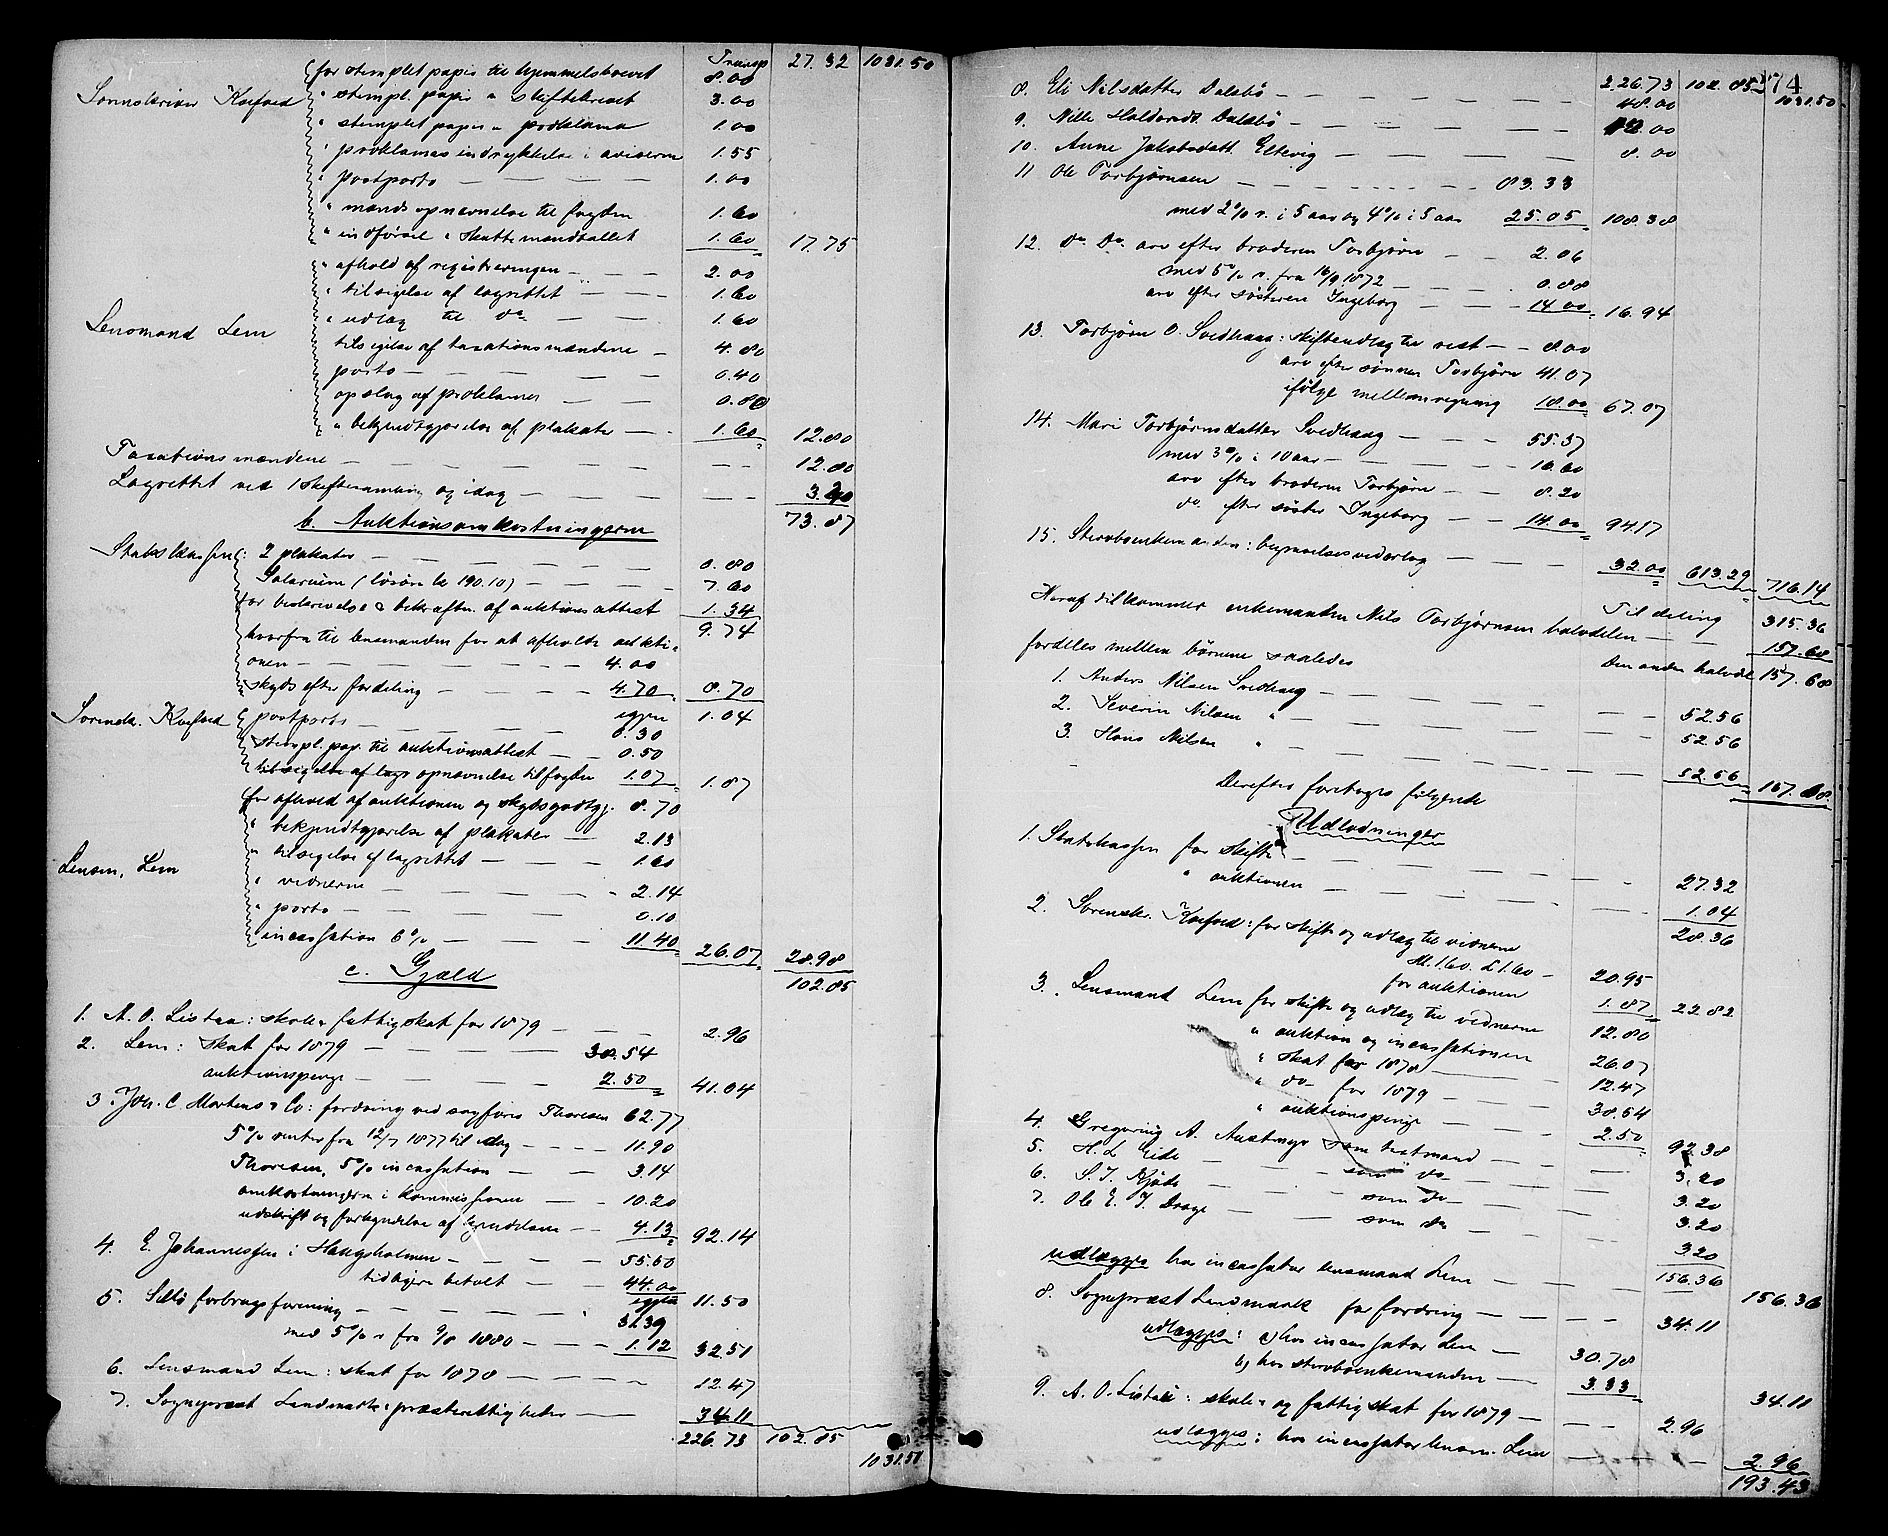 Transp 27.32 1031.50
for stemplet papir til hjemmelsbrevet 8.00
Sorenskriver Koefoed " stempl. papir " skiftebrevet 3.00
" stemplet papir " proklama 1.00
" proklamas indrykkelse i aviserne 1.55
" postporto — — — 1.00
" mands opnævnelse til fogden 1.60
" indførsel i skattemandtallet 1.60 17.75
" afhold af registreringen — — 2.00
" tilsigelse af lagrettet — — 1.60
Lensmand Lem " udlæg til do — — 1.60
tilsigelse af taxationsmændene — 4.80
porto — — — 0.40
opslag af proklama — — 0.80
" bekjendtgjørelse af plakater — 1.60 12.80
Taxationsmændene — — — 12.80
Lagrettet ved 1 skiftesamling og idag — — — 3.20
73.87
b. Auktionsomkostningerne
Statskassen: 2 plakater — — — 0.80
Salarium (løsøre kr 190.10) — — — 7.60
for beskrivelse & bekræftn. af auktions attest 1.34
9.74
hvorfra til lensmanden for at afholde aukti-
onen — — — 4.00
skyds efter fordeling — — — 4.70 8.70
igjen 1.04
Sorensk. Koefoed postporto — — — 0.30
stempl. pap. til auktionsattest — 0.50
opnævnelse til fogden 1.07 1.87
for afhold af auktionen og skydsgodtgj. 8.70
" bekjendtgjørelse af plakater — 2.13
" tilsigelse af lagrettet — — 1.60
Lensm. Lem " vidnerne — — 2.14
" porto — — — 0.10
incassation 6% — — — 11.40 26.07 28.98
102.85
c. Gjæld
1. A. O. Listaa: skole & fattigskat for 1879 — — — 2.96
2. Lem: skat for 1879 — — — 38.54
auktionspenge — — — 2.50 41.04
3. Joh. C. Martens & Co: fordring ved sagfører Thoresen 62.77
5% renter fra 12/7 1877 til idag — — — 11.90
Thoresen, 5% incassation — — 3.14
omkostningern i kommissionen — — 10.20
udskrift og forkyndelse af kjendelsen — — 4.13 92.14
4. E. Johannessen i Haugsholmen — — — 55.50
tidligere betalt — — 44.00
igjen 11.50
5. Sellø forbrugsforening — — — 31.39
med 5% r fra 9/8 1880 — — 1.12 32.51
6. Lensmand Lem: skat for 1878 — — — 12.47
7. Sogneprest Landmark: præsterettigheder — 34.11
226.73 102.85
1031.50
274
226.73 102.85 1031.50
8. Eli Nilsdatter Dalsbø — — — 48.00
9. Nille Haldorsdt. Dalsbø — — — 12.00
10. Anne Jakobsdatt. Eltevig — — — 8.00
11 Ole Torbjørnsen — — — 83.33
med 2% r. i 5 aar og 4% i 5 aar 25.05 108.38
12. Do Do arv efter broderen Torbjørn — — 2.06
med 5% r. fra 16/9 1872 — — 0.88
arv efter søsteren Ingeborg — — 14.00 16.94
13. Torbjørn O. Svedhaug: skifteudlæg til rest — — 8.00
arv efter sønnen Torbjørn 41.07
ifølge mellemregning 18.00 67.07
14. Mari Torbjørnsdatter Svedhaug — — 55.37
med 3% i 10 aar — — — 16.60
arv efter broderen Torbjørn — — 8.20
do. efter søster Ingeborg — — 14.00 94.17
15. Stervboenkemanden: begravelsesvederlag — — 32.00 613.29 716.14
Til deling 315.36
Heraf tilkommer enkemanden Nils Torbjørnsen halvdelen — — 157.68
Den anden halvdel 157.68
fordeles mellem børnene saaledes
1. Anders Nilsen Svedhaug — — — 52.56
2. Severin Nilsen " — — — 52.56
3. Hans Nilsen " — — — 52.56 157.68
Derefter foretoges følgende
Udlodninger
1. Statskassen for skifte — — — 27.32
" auktionen — — — 1.04
28.36
2. Sorensk. Koefoed: for skifte og udlæg til vidnerne
M. 1.60. L 1.60 — 20.95
for auktionen 1.87 22.82
3. Lensmand Lem for skifte og udlæg til vidnerne 12.80
" auktion og incassationen 26.07
" skat for 1878 — 12.47
" do for 1879 — 38.54
" auktionspenge — 2.50 92.38
4. Gregorius A. som testmand — — 3.20
5. H. L. Eide — — som do — — 3.20
6. S. J. — — som do — — 3.20
7. Ole E. J. Drage — — som do — — 3.20
156.36
udlægges hos incassator lensmand Lem — — 156.36
8. Sogneprest Landmark for fordring — — — 34.11
udlægges: a) hos incassator Lem — 30.78
b) hos stervboenkemanden — 3.33 34.11
9. A. O. Listaa: skole & og fattigskat for 1879 — — 2.96
udlægges: hos incassator lensm. Lem — — 2.96
193.43